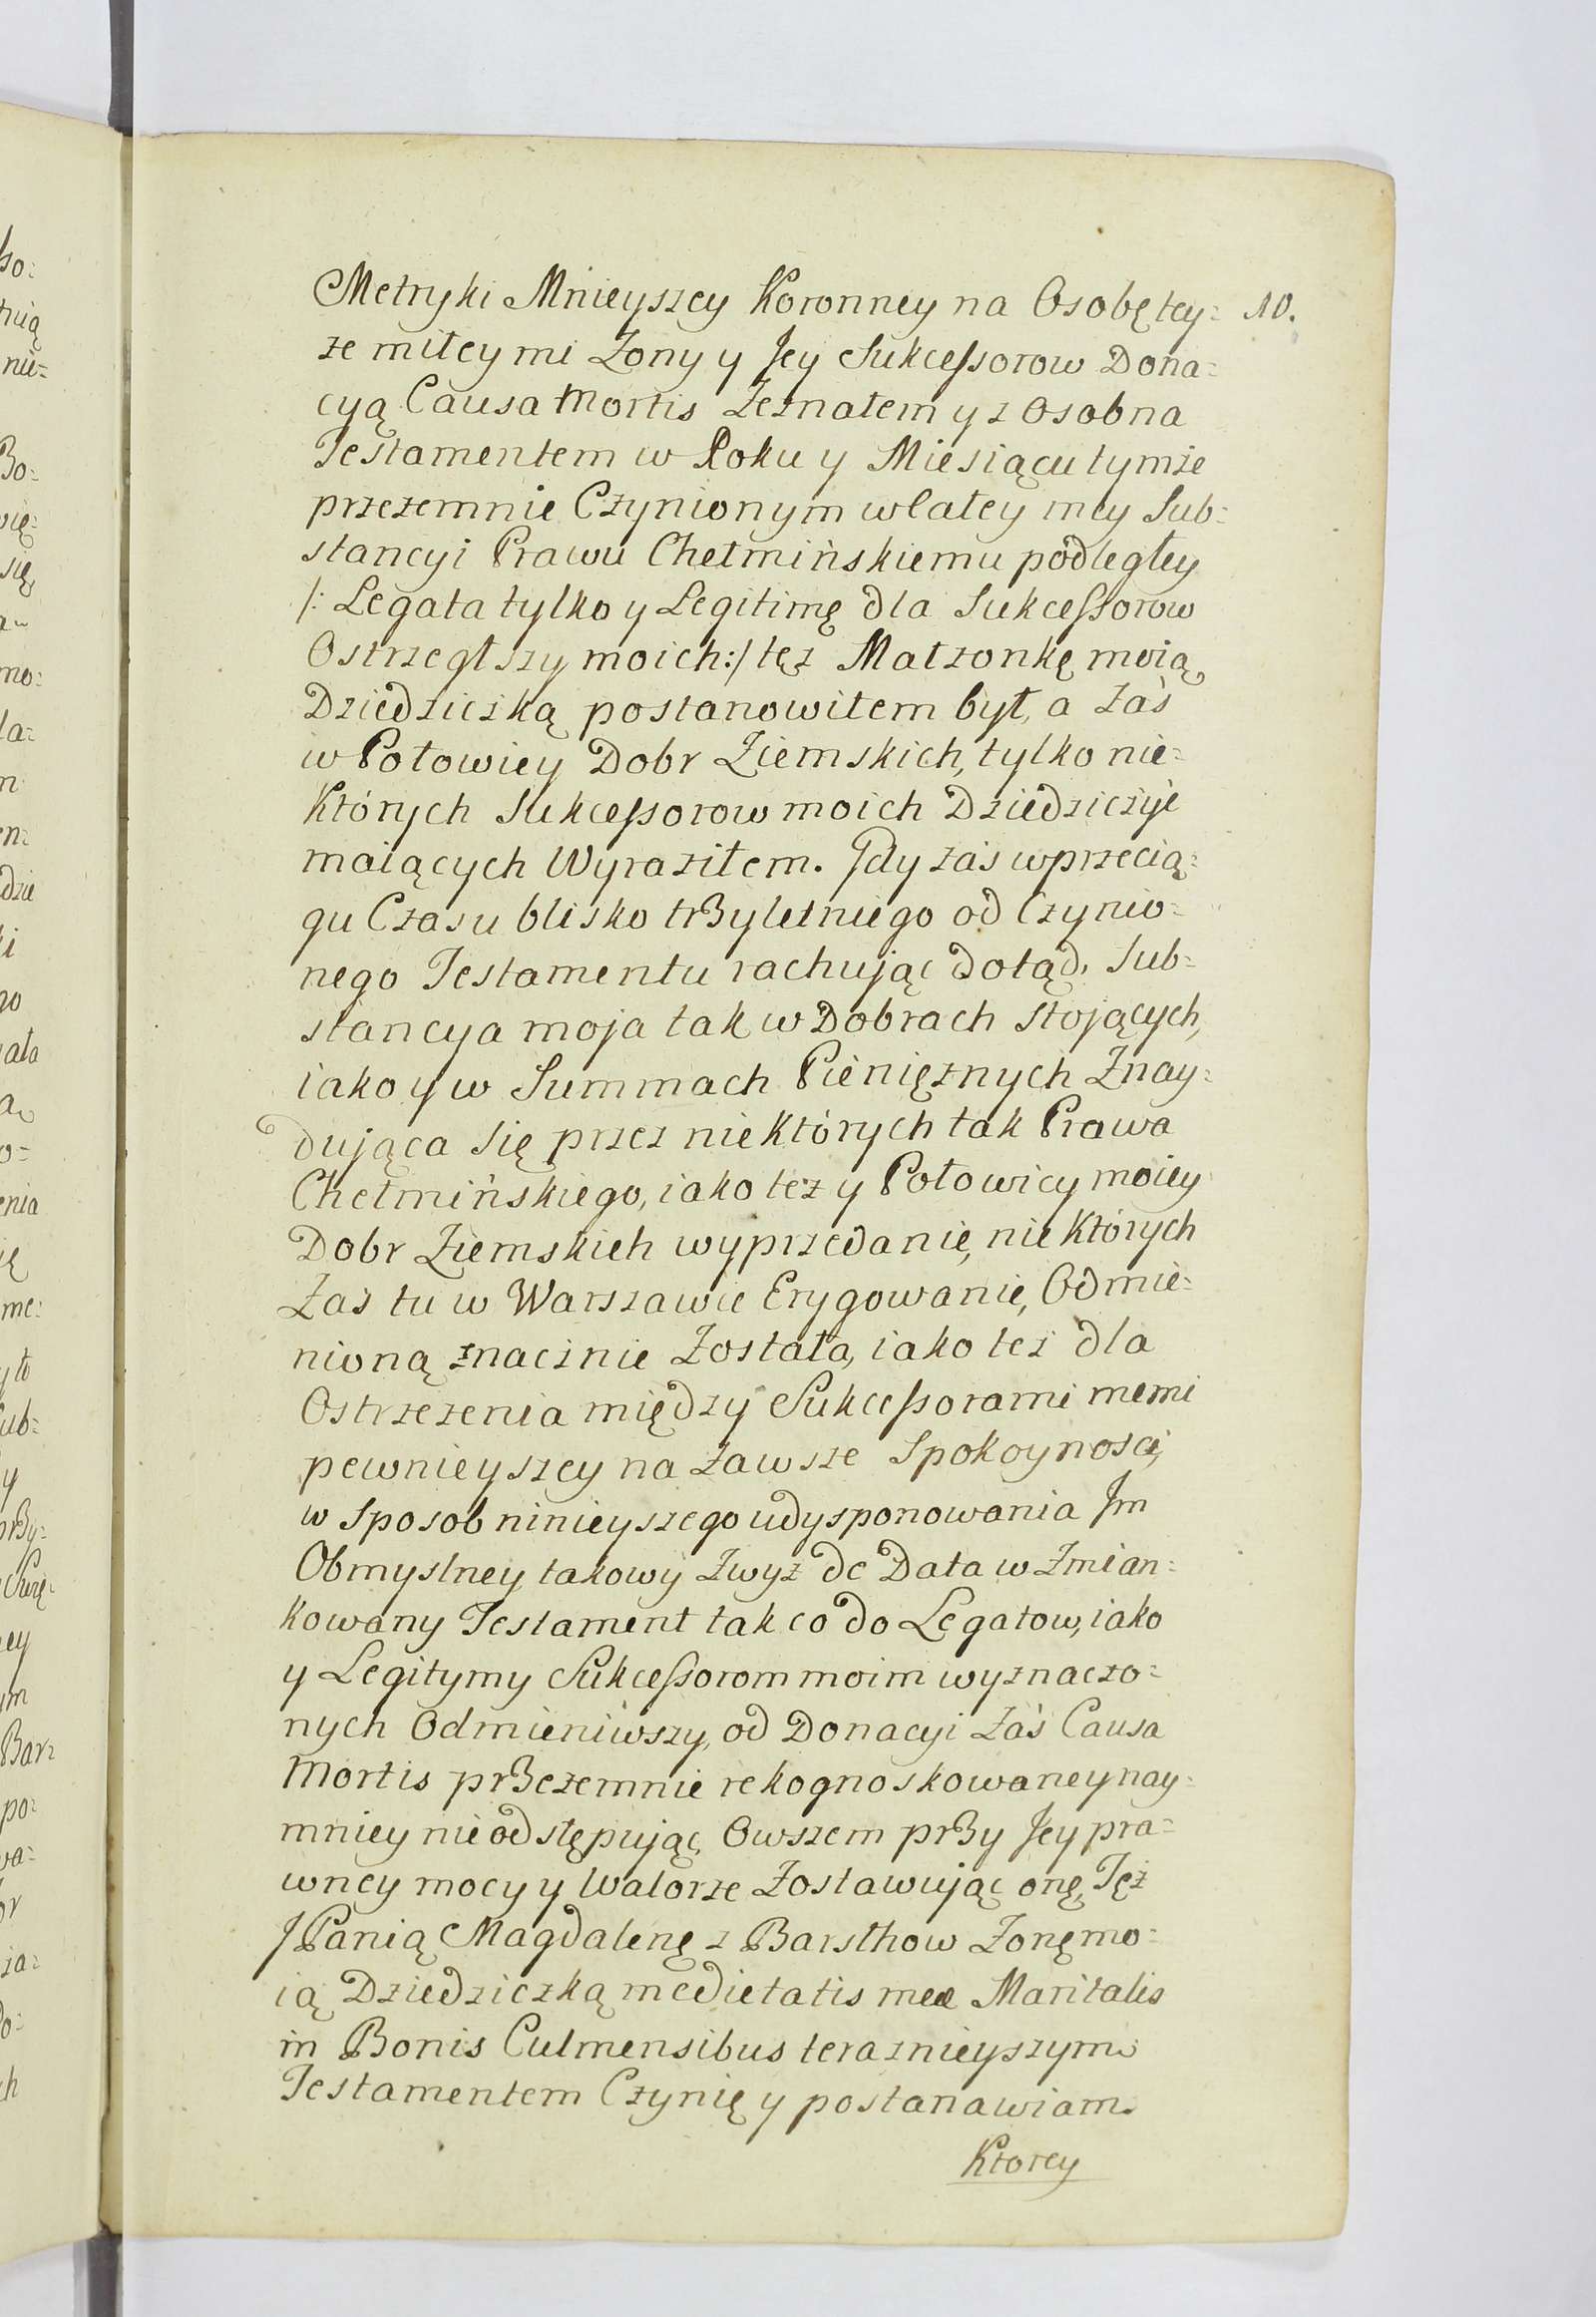 Metryki Mnieyszey Koronney na Osobę tey= 10.
że miłey mi Żony y Jey Sukcessorow Dona=
cyą Causa Mortis Zeznałem y z Osobna
Testamentem w Roku y Miesiącu tymże
przezemnie Czynionym w Całey mey Sub=
stancyi Prawu Chełmińskiemu podległey
/: Legata tylko y Legitimę dla Sukcessorow
Ostrzegłszy moich :/ tęż Małżonkę moią
Dziedziczką postanowiłem był, a zaś
w Połowiey Dobr Ziemskich, tylko nie=
których Sukcessorow moich Dziedziczyć
maiących Wyraziłem. Gdy zaś w przecią=
gu Czasu blisko trzyletniego od Czynio=
nego Testamentu rachując dotąd, Sub=
stancya moja tak w Dobrach stojących,
iako y w Summach Pieniężnych Znay=
dująca się przez niektórych tak Prawa
Chełmińskiego, iako też y Połowicy moiey
Dobr Ziemskich wyprzedanie, niektórych
Zaś tu w Warszawie Erygowanie, Odmie=
nioną znacznie Została, iako też dla
Ostrzeżenia między Sukcessorami memi
pewnieyszey na zawsze Spokoynosci,
w sposob ninieyszego udysponowania Im
Obmyslney takowy Zwyż de Data wzmian=
kowany Testament tak co do Legatow, iako
y Legitymy Sukcessorom moim wyznaczo=
nych Odmieniwszy, od Donacyi Zaś Causa
Mortis przezemnie rekognoskowaney nay=
mniey nie odstępując, Owszem przy Jey pra=
wney mocy y Walorze Zostawując onę, Tęż
JPanią Magdalenę z Barsthow Żonę mo=
ią Dziedziczką medietatis meæ Maritalis
in Bonis Culmensibus teraznieyszym
Testamentem Czynię y postanawiam.
Ktorey